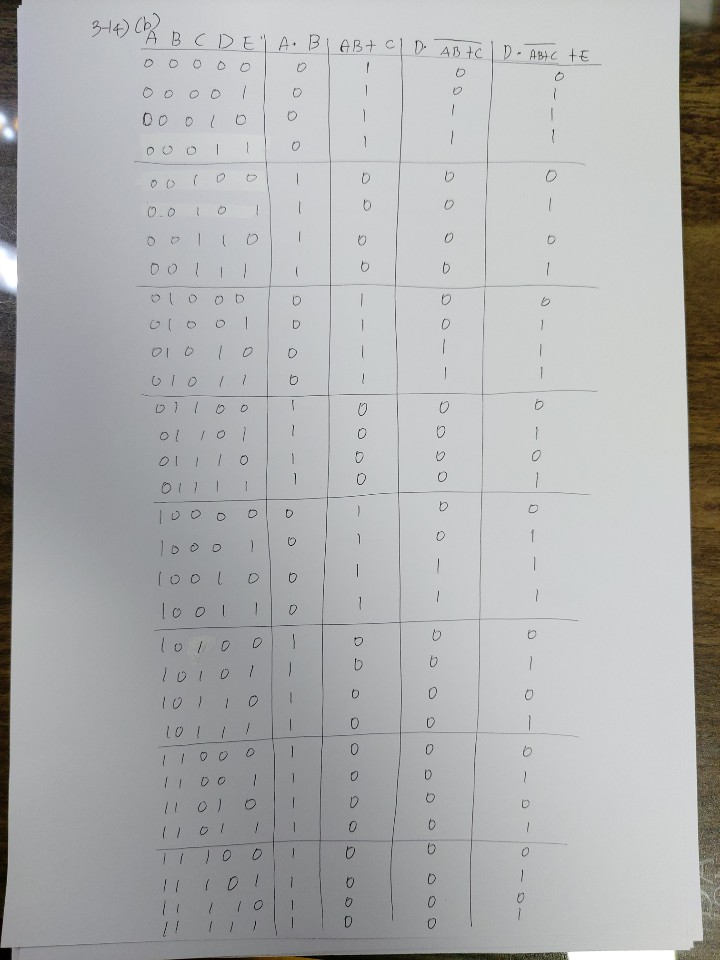 3-14) (b)
A B C D E A · B AB + C D · \overline{AB + C} D · \overline{AB+C} + E
0 0 0 0 0 0 1 0 0
0 0 0 0 1 0 1 0 1
0 0 0 1 0 0 1 1 1
0 0 0 1 1 0 1 1 1
0 0 1 0 0 1 0 0 0
0 0 1 0 1 1 0 0 1
0 0 1 1 0 1 0 0 0
0 0 1 1 1 1 0 0 1
0 1 0 0 0 0 1 0 0
0 1 0 0 1 0 1 0 1
0 1 0 1 0 0 1 1 1
0 1 0 1 1 0 1 1 1
0 1 1 0 0 1 0 0 0
0 1 1 0 1 1 0 0 1
0 1 1 1 0 1 0 0 0
0 1 1 1 1 1 0 0 1
1 0 0 0 0 0 1 0 0
1 0 0 0 1 0 1 0 1
1 0 0 1 0 0 1 1 1
1 0 0 1 1 0 1 1 1
1 0 1 0 0 1 0 0 0
1 0 1 0 1 1 0 0 1
1 0 1 1 0 1 0 0 0
1 0 1 1 1 1 0 0 1
1 1 0 0 0 1 0 0 0
1 1 0 0 1 1 0 0 1
1 1 0 1 0 1 0 0 0
1 1 0 1 1 1 0 0 1
1 1 1 0 0 1 0 0 0
1 1 1 0 1 1 0 0 1
1 1 1 1 0 1 0 0 0
1 1 1 1 1 1 0 0 1